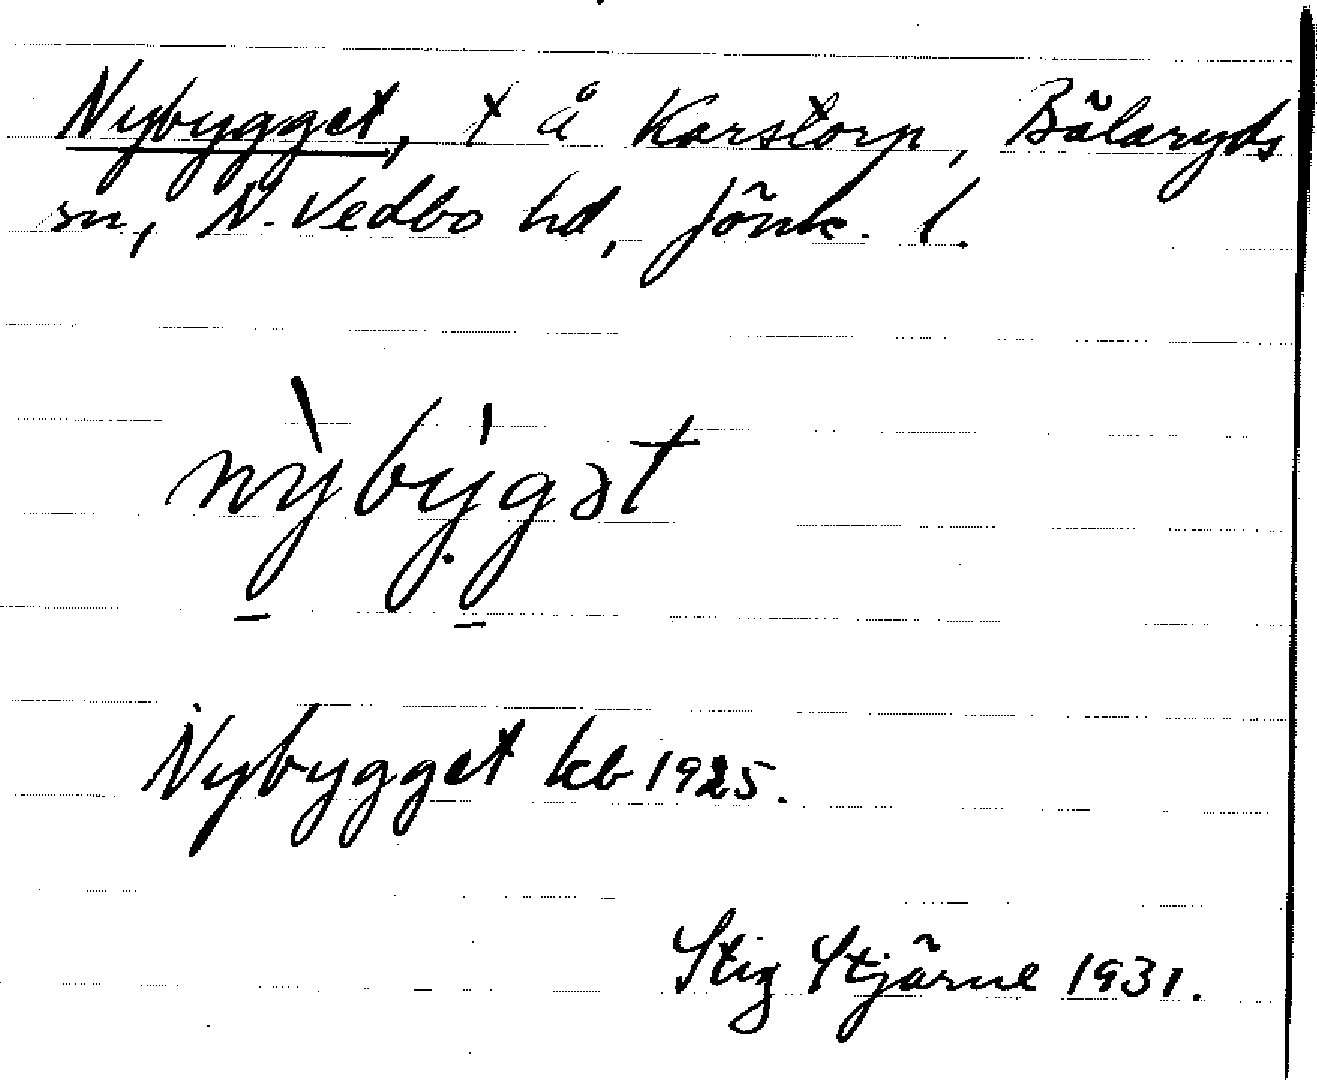 Nybygget, t å Karstorp, Bälaryds
sn, N. Vedbo hd, Jönk. l.
nỳbỵ̍gət
Nybygget kb 1925.
Stig Stjärne 1931.